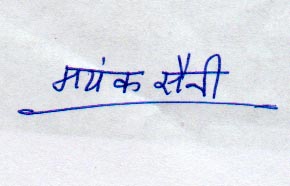 मयंक सैनी